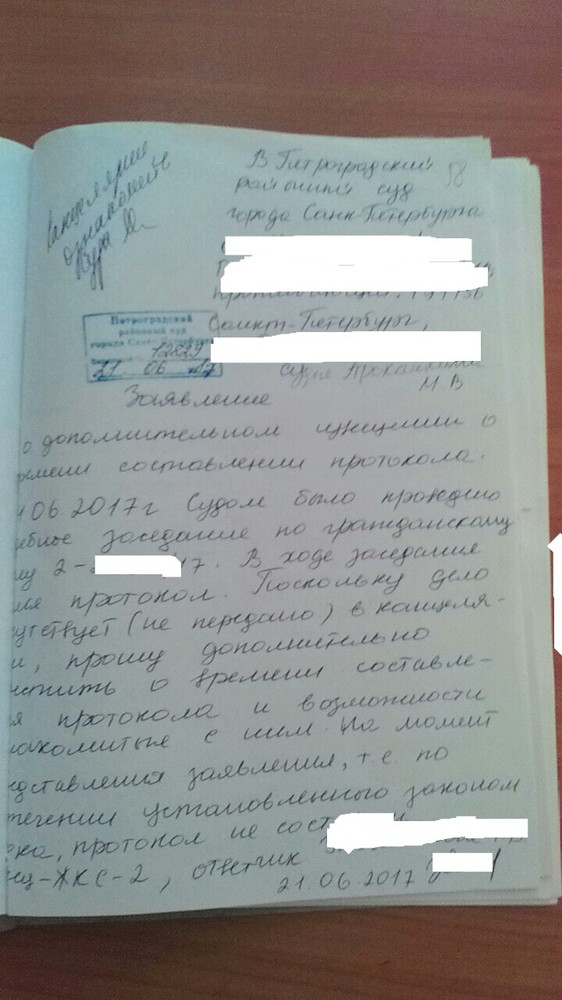 Канцелярии
ознакомить
В Петроградский
58
районный суд
города Санкт-Петербурга
проживающий: 197136
Санкт-Петербург,
судья
М В
Петроградский
районный суд
города Санкт-Петербурга
12829
21 06 2017
Заявление
о дополнительном извещении о
ремени составлении протокола.
06.2017г Судом было проведено
ебное заседание по гражданскому
у 2- 17. В ходе заседания
лся протокол. Поскольку дело
утствует (не передано) в канцеля-
и, прошу дополнительно
естить о времени составле-
я протокола и возможности
накомиться с ним. На момент
дставления заявления, т.е. по
течении установленного законом
ока, протокол не сост
ец-ЖКС-2, ответчик
21.06.2017